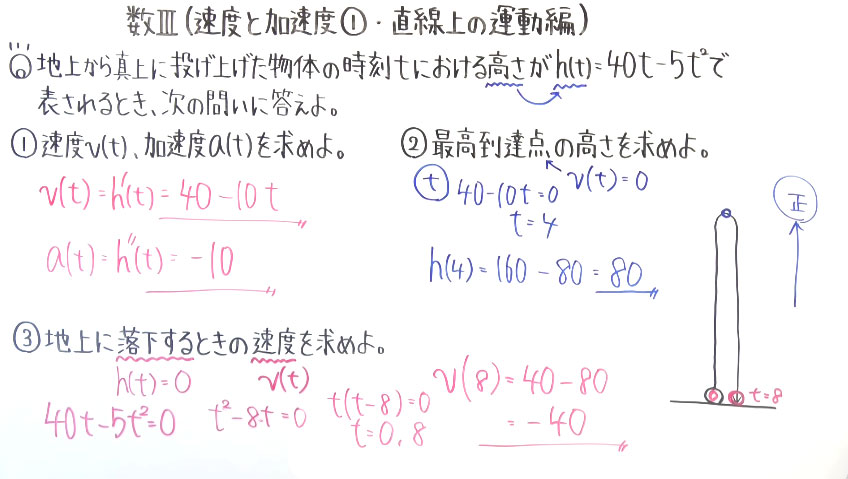 数Ⅲ(速度と加速度①・直線上の運動編)
地上から真上に投げ上げた物体の時刻tにおける高さがh(t)=40t-5t²で
表されるとき、次の問いに答えよ。
①速度v(t)、加速度a(t)を求めよ。
v(t)=h'(t)=40-10t
a(t)=h''(t)=-10
②最高到達点の高さを求めよ。
v(t)=0
t 40-10t=0
t=4
h(4)=160-80=80
正
t=8
③地上に落下するときの速度を求めよ。
h(t)=0 v(t)
40t-5t²=0 t²-8t=0 t(t-8)=0
t=0,8
v(8)=40-80
=-40